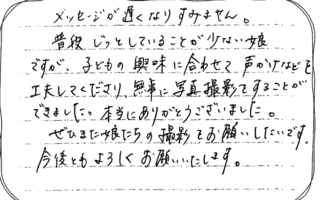 メッセージが遅くなりすみません。
普段じっとしていることが少ない娘
ですが、子どもの興味に合わせて声がけなどを
工夫してくださり、無事に写真撮影をすることが
できました。本当にありがとうございました。
ぜひまた娘たちの撮影をお願いしたいです。
今後ともよろしくお願いいたします。